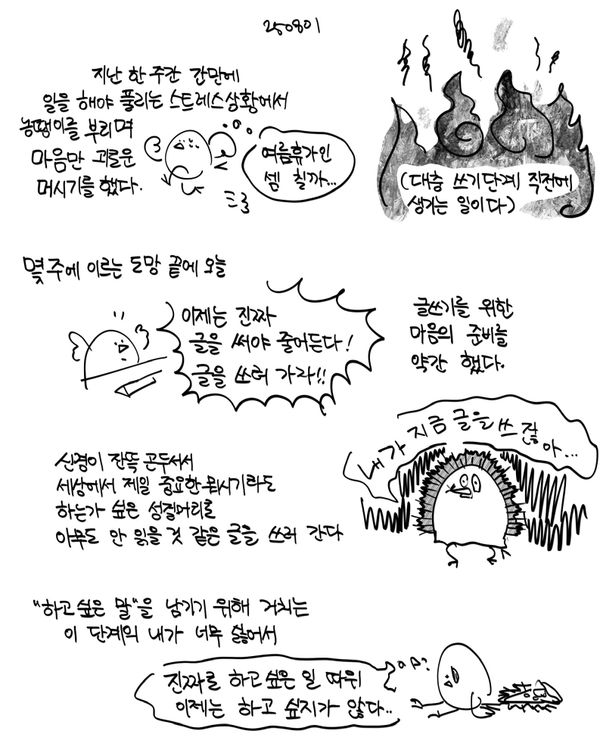 250801
지난 한 주간 간만에
일을 해야 풀리는 스트레스 상황에서
농땡이를 부리며
마음만 괴로운
머시기를 했다.
여름휴가인
셈 칠까...
(대충 쓰기 단계 직전에
생기는 일이다)
몇 주에 이르는 도망 끝에 오늘
이제는 진짜
글을 써야 줄어든다!
글을 쓰러 가라!!
글쓰기를 위한
마음의 준비를
약간 했다.
내가 지금 글을 쓰잖아...
신경이 잔뜩 곤두서서
세상에서 제일 중요한 뭐시기라도
하는가 싶은 성질머리로
아무도 안 읽을 것 같은 글을 쓰러 간다
"하고 싶은 말"을 남기기 위해 거치는
이 단계의 내가 너무 싫어서
진짜로 하고 싶은 일 따위
이제는 하고 싶지가 않다..